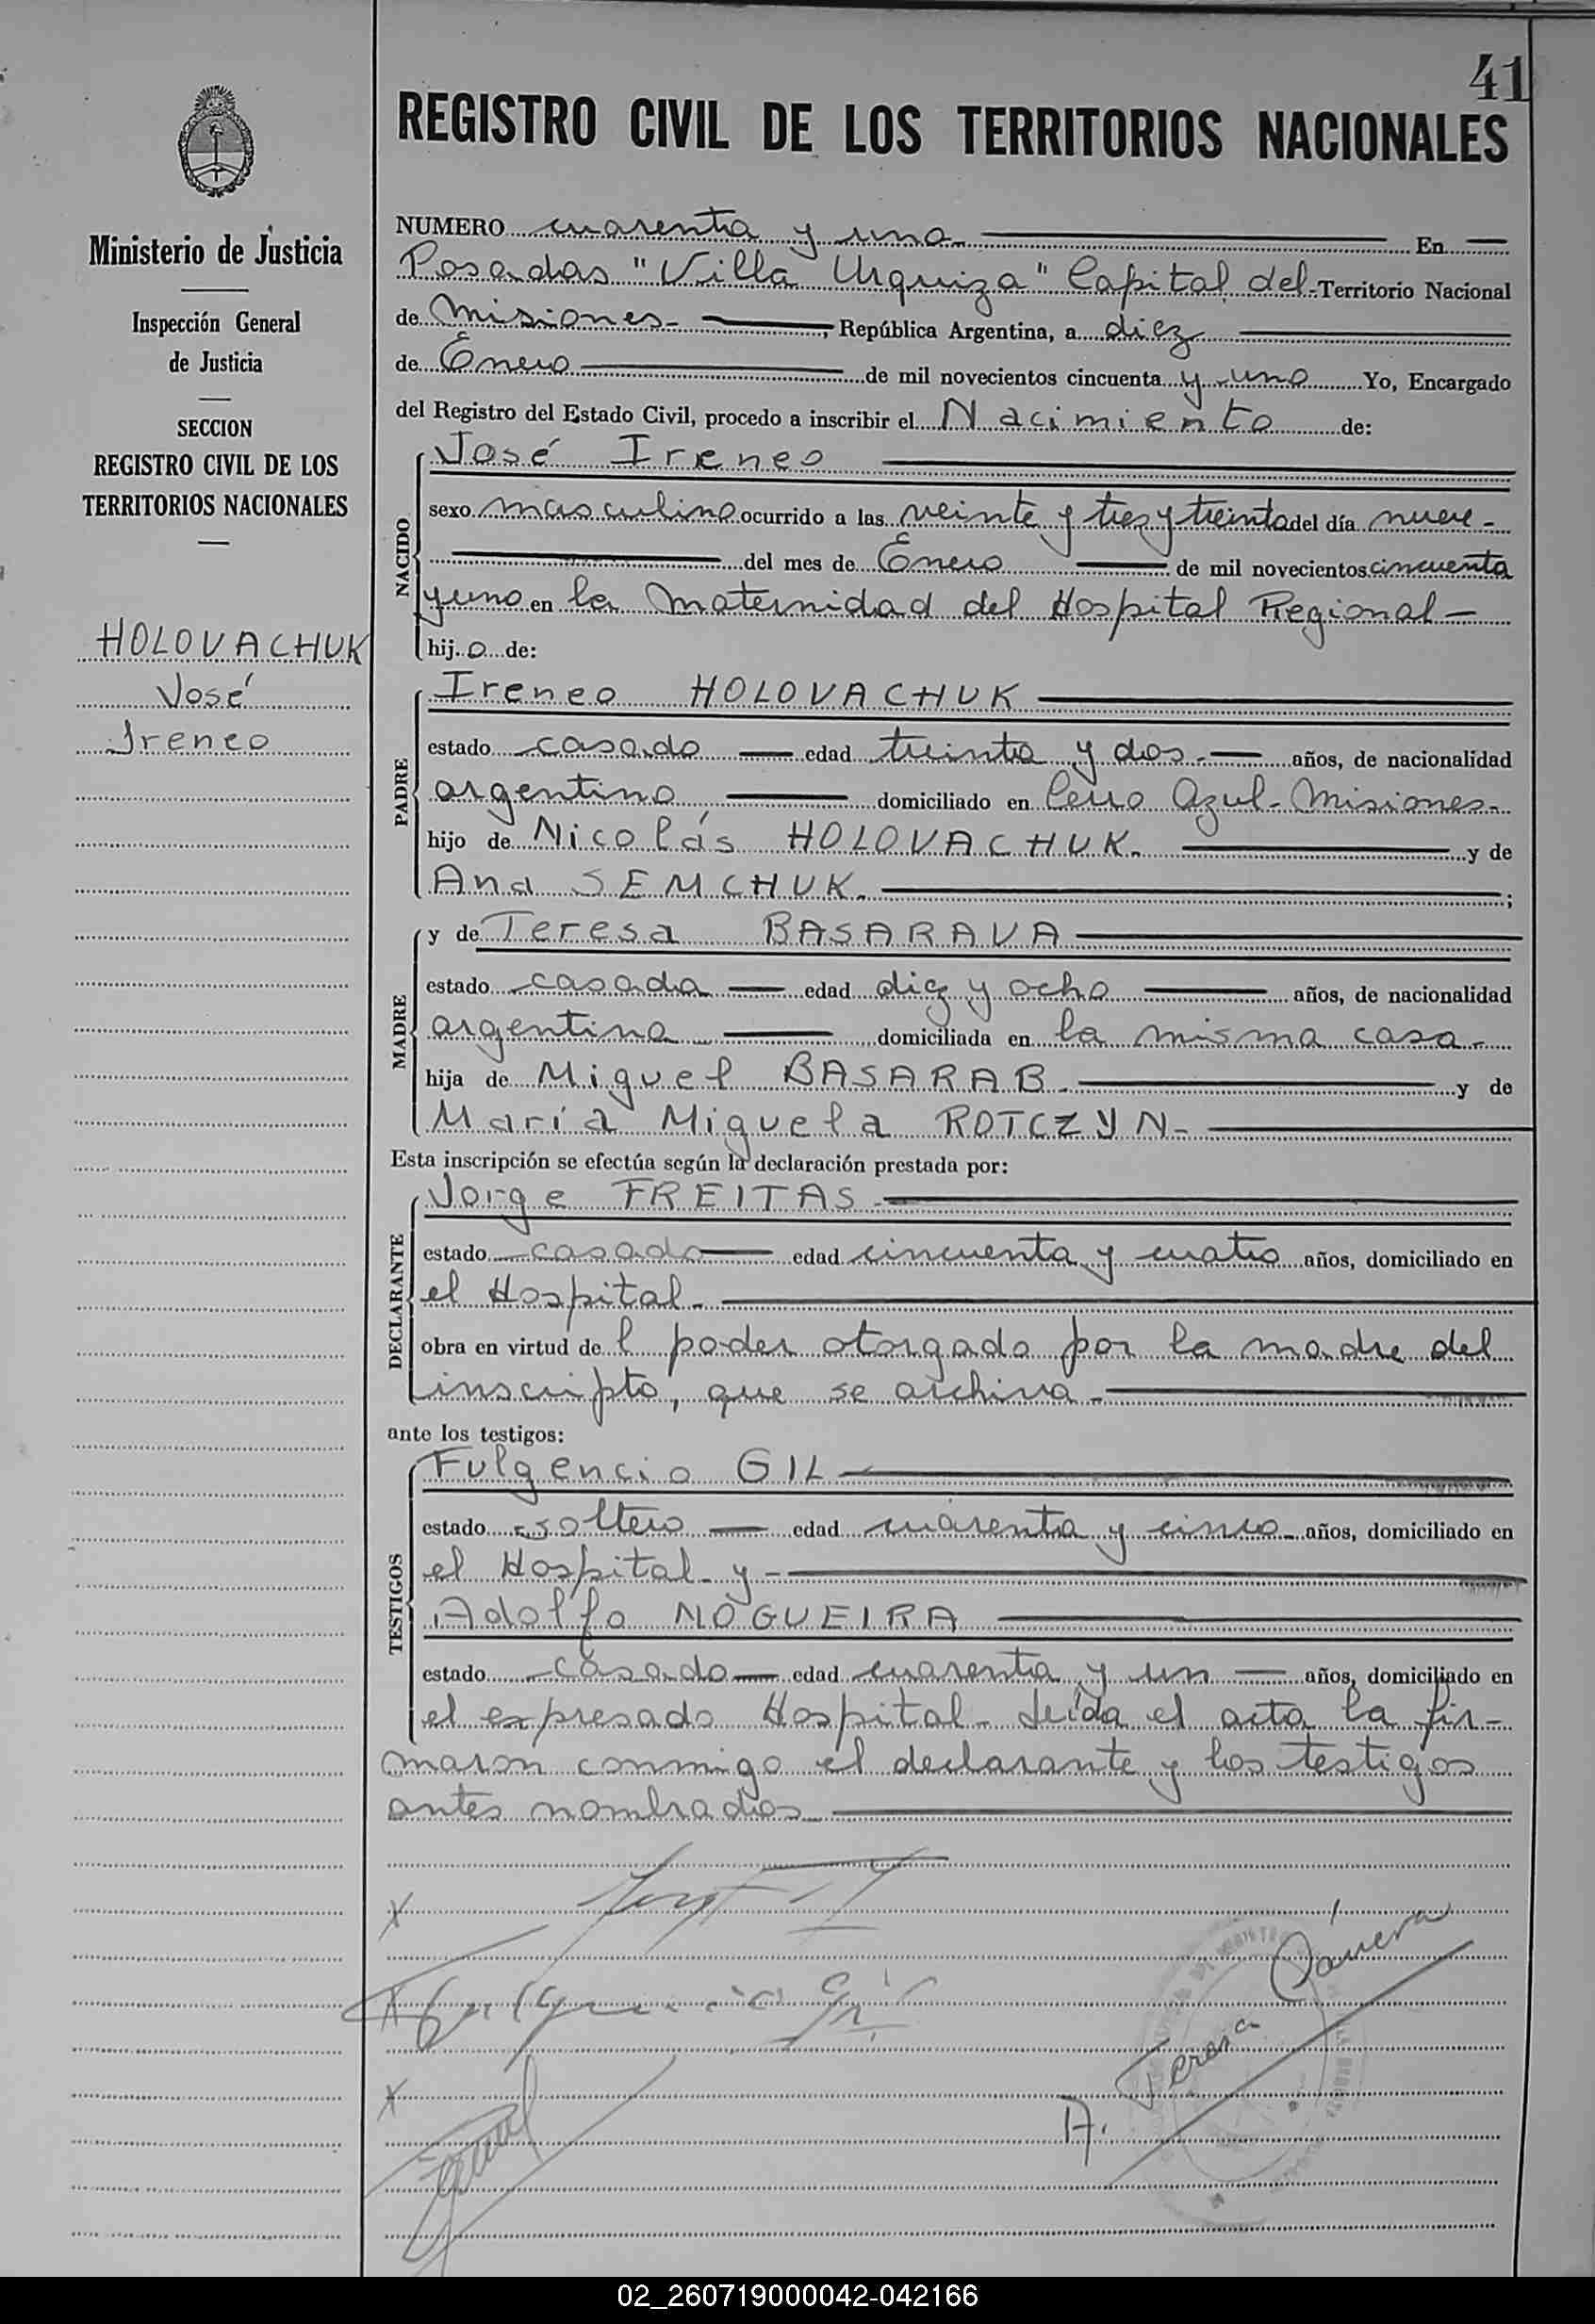 41
REGISTRO CIVIL DE LOS TERRITORIOS NACIONALES
Ministerio de Justicia
Inspección General
de Justicia
SECCION
REGISTRO CIVIL DE LOS
TERRITORIOS NACIONALES
HOLOVACHUK
José
Ireneo
NUMERO cuarenta y uno En
Posadas "Villa Urquiza" Capital del Territorio Nacional
de Misiones, República Argentina, a diez
de Enero de mil novecientos cincuenta y uno Yo, Encargado
del Registro del Estado Civil, procedo a inscribir el Nacimiento de:
NACIDO
José Ireneo
sexo masculino ocurrido a las veinte y tres y treinta del día nueve
del mes de Enero de mil novecientos cincuenta
y uno en la Maternidad del Hospital Regional
hijo de:
PADRE
Ireneo HOLOVACHUK
estado casado edad treinta y dos años, de nacionalidad
argentino domiciliado en Cerro Azul-Misiones
hijo de Nicolás HOLOVACHUK. y de
Ana SEMCHUK.;
MADRE
y de Teresa BASARAVA
estado casada edad diez y ocho años, de nacionalidad
argentina domiciliada en la misma casa
hija de Miguel BASARAB y de
María Miguela ROTCZYN
Esta inscripción se efectúa según la declaración prestada por:
DECLARANTE
Jorge FREITAS
estado casado edad cincuenta y cuatro años, domiciliado en
el Hospital
obra en virtud del poder otorgado por la madre del
inscripto, que se archiva
ante los testigos:
TESTIGOS
Fulgencio GIL
estado soltero edad cuarenta y cinco años, domiciliado en
el Hospital y
Adolfo NOGUEIRA
estado casado edad cuarenta y un años, domiciliado en
el expresado Hospital - Leída el acta la fir-
maron conmigo el declarante y los testigos
antes nombrados
X
Fulgencio Gil
X
A. Teresa
02_260719000042-042166